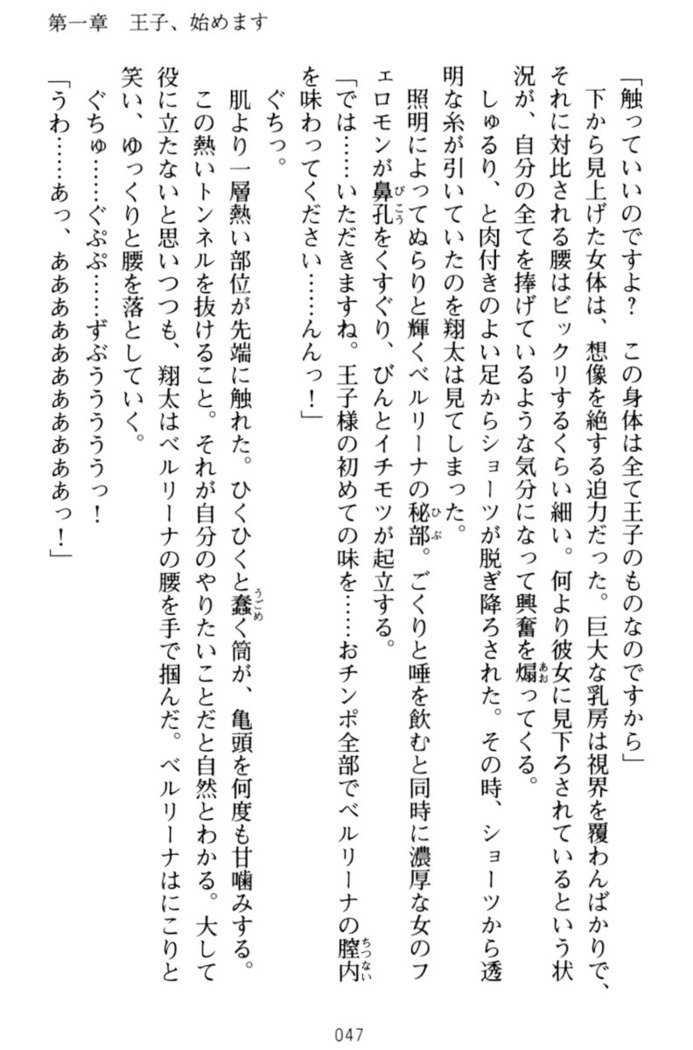 第一章　王子、始めます
「触っていいのですよ？　この身体は全て王子のものなのですから」
下から見上げた女体は、想像を絶する迫力だった。巨大な乳房は視界を覆わんばかりで、
それに対比される腰はビックリするくらい細い。何より彼女に見下ろされているという状
況が、自分の全てを捧げているような気分になって興奮を煽ってくる。
しゅるり、と肉付きのよい足からショーツが脱ぎ降ろされた。その時、ショーツから透
明な糸が引いていたのを翔太は見てしまった。
照明によってぬらりと輝くベルリーナの秘部。ごくりと唾を飲むと同時に濃厚な女のフ
ェロモンが鼻孔をくすぐり、びんとイチモツが起立する。
「では……いただきますね。王子様の初めての味を……おチンポ全部でベルリーナの膣内
を味わってください……んんっ！」
ぐちっ。
肌より一層熱い部位が先端に触れた。ひくひくと蠢く筒が、亀頭を何度も甘噛みする。
この熱いトンネルを抜けること。それが自分のやりたいことだと自然とわかる。大して
役に立たないと思いつつも、翔太はベルリーナの腰を手で掴んだ。ベルリーナはにこりと
笑い、ゆっくりと腰を落としていく。
ぐちゅ……ぐぷぷ……ずぶううううっ！
「うわ……あっ、ああああああああああああっ！」
047